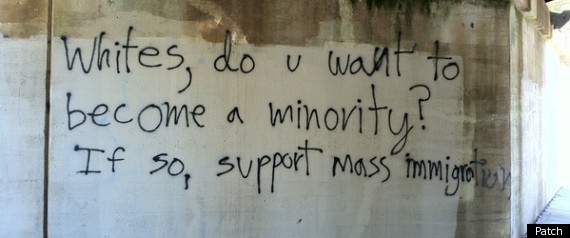 Whites, do u want to
become a minority?
If so, support mass immigration
Patch